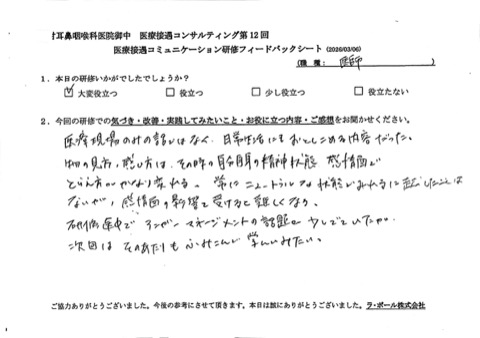 耳鼻咽喉科医院御中 医療接遇コンサルティング第12回
医療接遇コミュニケーション研修フィードバックシート（2026/03/06）
（職種： 医師 ）
1．本日の研修いかがでしたでしょうか？
☑ 大変役立つ □ 役立つ □ 少し役立つ □ 役立たない
2．今回の研修での気づき・改善・実践してみたいこと・お役に立つ内容・ご感想をお聞かせください。
医療現場のみの話ではなく、日常生活にもおとしこめる内容だった。
物の見方、感じ方は、その時の自分自身の精神状態 感情面で
とらえ方がかなり変わる。常にニュートラルな状態であれるに越したことは
ないが、感情面の影響を受けると難しくなる。
研修途中で アンガーマネージメントの話題も少しでていたが、
次回は そのあたりも ふみこんで 学んでみたい。
ご協力ありがとうございました。今後の参考にさせて頂きます。本日は誠にありがとうございました。ラ・ポール株式会社